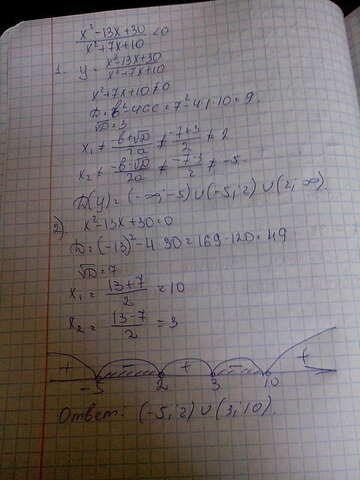 x²-13x+30 / x²+7x+10 < 0
1. y = x²-13x+30 / x²+7x+10
x²+7x+10≠0
D = b²-4ac = 7²-4·1·10 = 9
√D = 3
x₁ ≠ -b+√D / 2a ≠ -7+3 / 2 ≠ 2
x₂ ≠ -b-√D / 2a ≠ -7-3 / 2 ≠ -5
D(y) = (-∞; -5) ∪ (-5; 2) ∪ (2; ∞).
2). x²-13x+30=0
D = (-13)²-4·30 = 169-120 = 49
√D = 7
x₁ = 13+7 / 2 = 10
x₂ = 13-7 / 2 = 3
+ - + - +
-5 2 3 10
Ответ: (-5; 2) ∪ (3; 10).